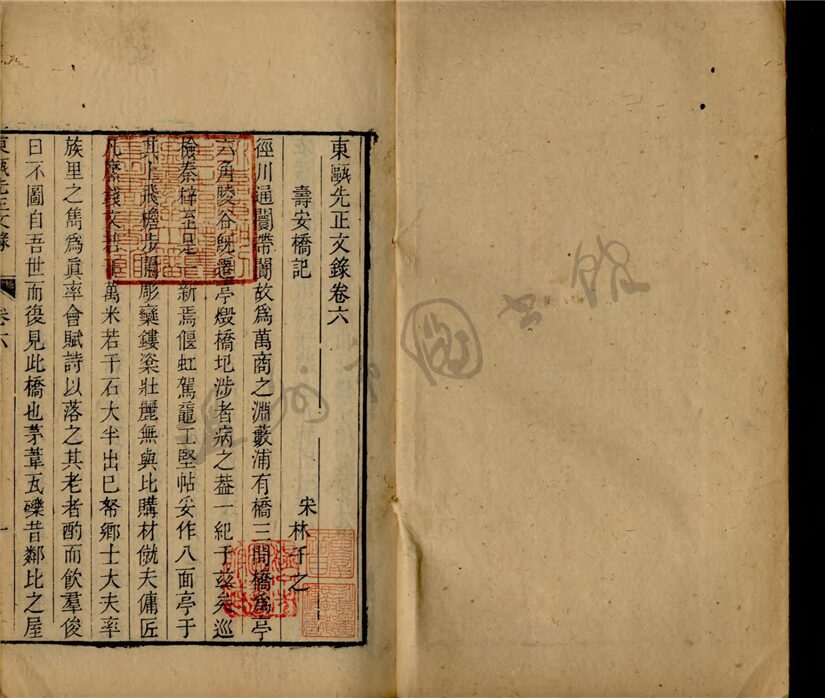 東甌先正文錄卷六
壽安橋記
宋林千之
徑川通闤帶闠故爲萬商之淵藪浦有橋三間橋爲亭
六角陵谷旣遷亭燬橋圮涉者病之葢一紀于玆矣巡
檢秦梓至是新焉偃虹駕黿工堅帖妥作八面亭于
其上飛檐步闌彫欒鏤楶壯麗無與比購材僦夫傭匠
凡縻錢文若干萬米若干石大半出已帑鄉士大夫率
族里之雋爲眞率會賦詩以落之其老者酌而飲羣俊
曰不圖自吾世而復見此橋也茅葦瓦礫昔鄰比之屋
東甌先正文錄
卷六
一
圖書館